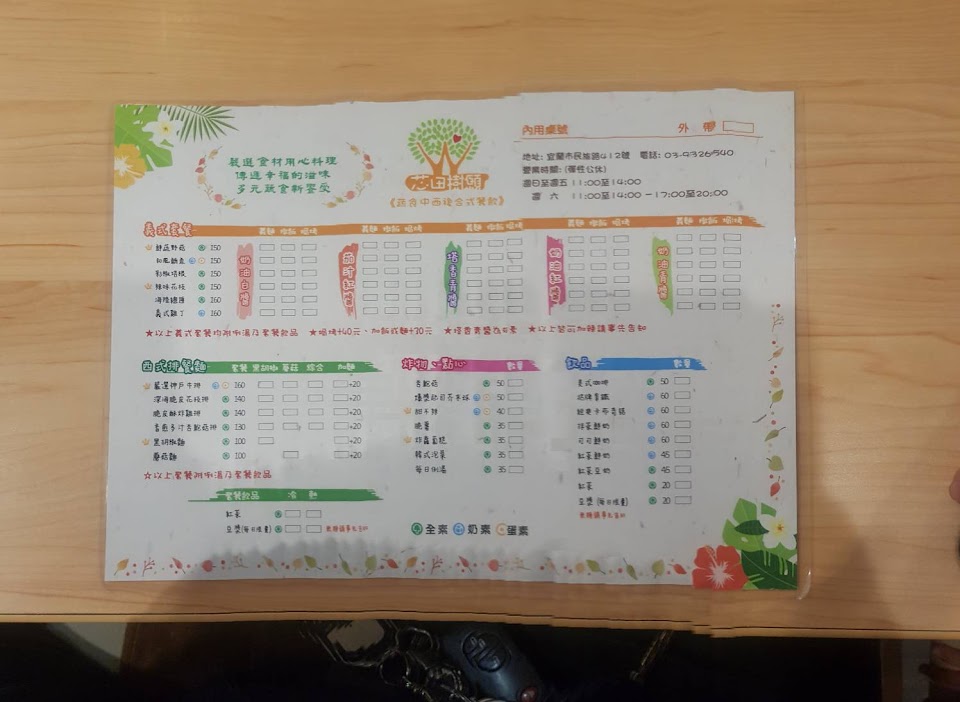 嚴選食材用心料理
傳遞幸福的滋味
多元蔬食新饗受
芯田樹頭
《蔬食中西複合式餐飲》
內用桌號 外 帶
地址: 宜蘭市民族路412號 電話: 03-9326540
營業時間: (彈性公休)
週日至週五 11:00至14:00
週 六 11:00至14:00 －17:00至20:00
義式套餐 義麵 燉飯 焗烤 義麵 燉飯 焗烤 義麵 燉飯 焗烤 義麵 燉飯 焗烤 義麵 燉飯 焗烤
鮮蔬野菇 150
和風鮑魚 150
彩椒
150
辣味花枝 150
160
義式雞丁 160
奶油白醬
茄汁紅醬
塔香青醬
奶油紅醬
奶油青醬
★以上義式套餐均附例湯乃套餐飲品 ★焗烤+40元、加飯或麵+30元 ★塔香青醬為全素 ★以上皆可加辣請事先告知
西式排餐麵 套餐 黑胡椒 蘑菇 綜合 加麵
嚴選神戶牛排 160 +20
深海脆皮花枝排 140 +20
脆皮酥炸雞排 140 +20
香煎多汁杏鮑菇排 130 +20
黑胡椒麵 100 +20
蘑菇麵 100 +20
★以上套餐附例湯乃套餐飲品
套餐飲品 冷 熱
紅茶
豆漿(每日限量) 無糖請事先告知
炸物、點心 數量
杏鮑菇 50
爆漿起司芥末球 50
甜不辣 40
脆薯 35
炸蘿蔔糕 35
韓式泡菜 35
每日例湯 35
飲品 數量
美式咖啡 50
招牌拿鐵 60
經典卡布奇諾 60
抹茶鮮奶 60
可可鮮奶 60
紅茶鮮奶 45
紅茶豆奶 45
紅茶 20
豆漿 (每日限量) 20
無糖請事先告知
全素 奶素 蛋素